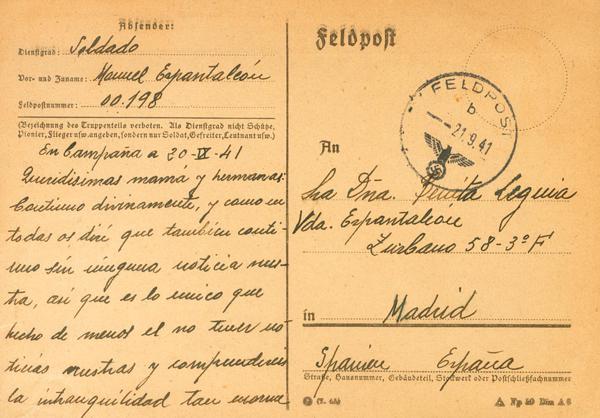 Absender:
Dienstgrad: Soldado
Vor- und Zuname: Manuel Espantaleón
Feldpostnummer: 00.198
(Bezeichnung des Truppenteils verboten. Als Dienstgrad nicht Schütze,
Pionier, Flieger usw. angeben, sondern nur Soldat, Gefreiter, Leutnant usw.)
En Campaña a 20-IX-41
Queridisimas mama y hermanas:
Continuo divinamente, y como en
todas os diré que tambien conti-
nuo sin ninguna noticia vues-
tra, asi que es lo unico que
hecho de menos el no tener no-
ticias vuestras y comprendereis
la intranquilidad tan enorme
Feldpost
FELDPOST
b
-21.9.41
An
Sra Dña. Leguia
Vda. Espantaleon
Zurbano 58-3º F
in Madrid
Spanien España
Straße, Hausnummer, Gebäudeteil, Stockwerk oder Postschließfachnummer
Din A 6